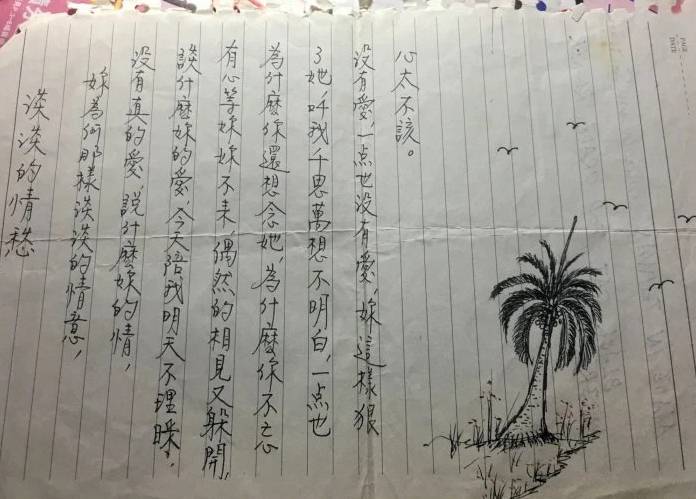 淡淡的情愁
妳為何那樣淡淡的情意,
沒有真的愛,說什麼妳的情,
談什麼妳的愛,今天陪我明天不理睬,
有心等妳妳不來,偶然的相見又躲開,
為什麼你還想念她,為什麼你不忘
了她,叫我千思萬想不明白,一点也
沒有愛,一点也沒有愛,妳這樣狠
心太不該。
PAGE
DATE